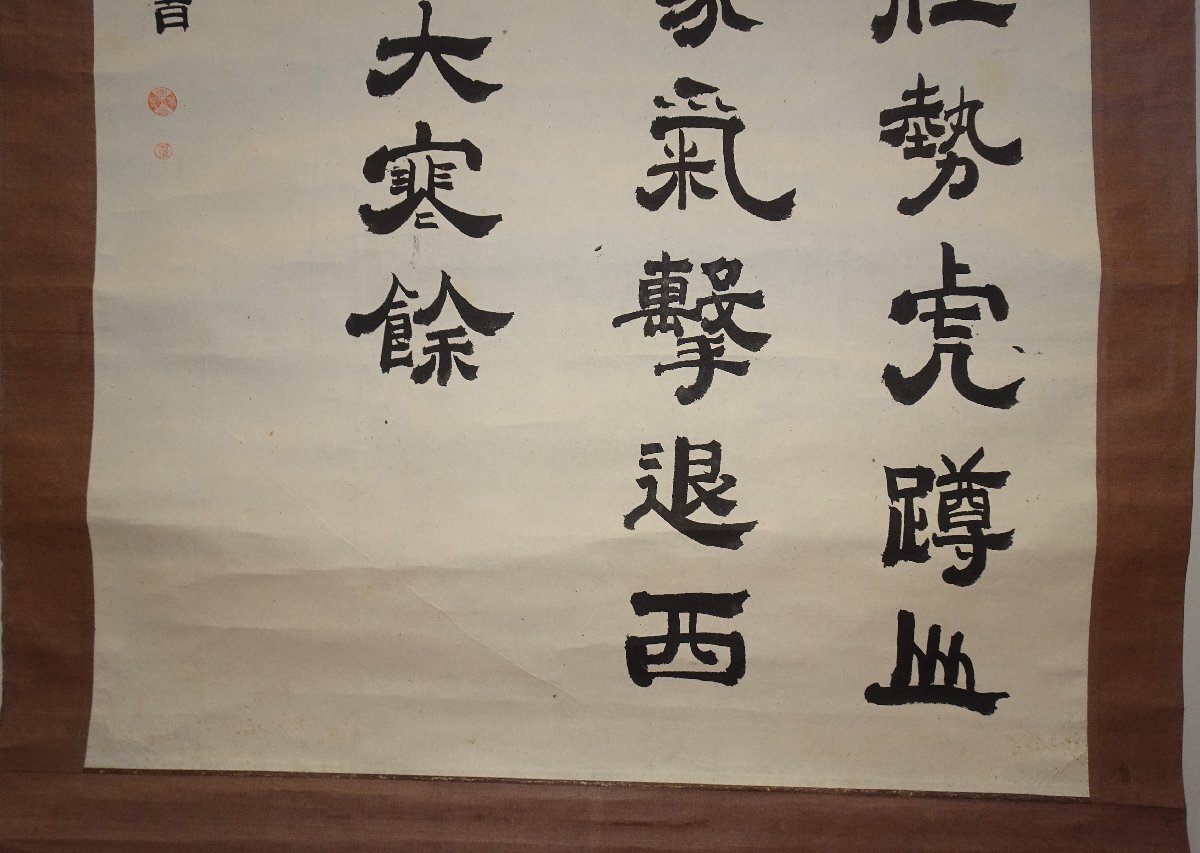 勢虎蹲
氣擊退西
大寒餘